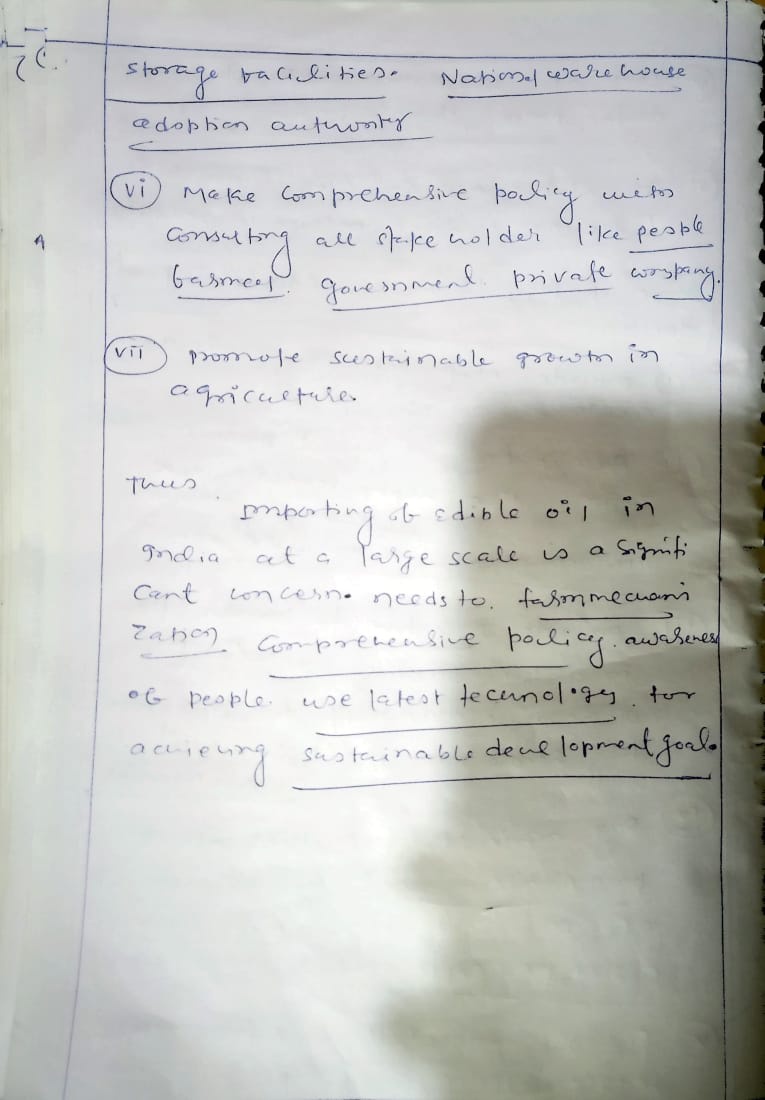 storage facilities. National ware house
adoption authority
(vi) Make comprehensive policy with
consulting all stake holder like people
farmer. government. private company.
(vii) promote sustainable growth in
agriculture.
Thus
importing of edible oil in
India at a large scale is a signifi
cant concern. needs to. farm mechani
zation comprehensive policy. awareness
of people. use latest technology. for
achieving sustainable development goal.